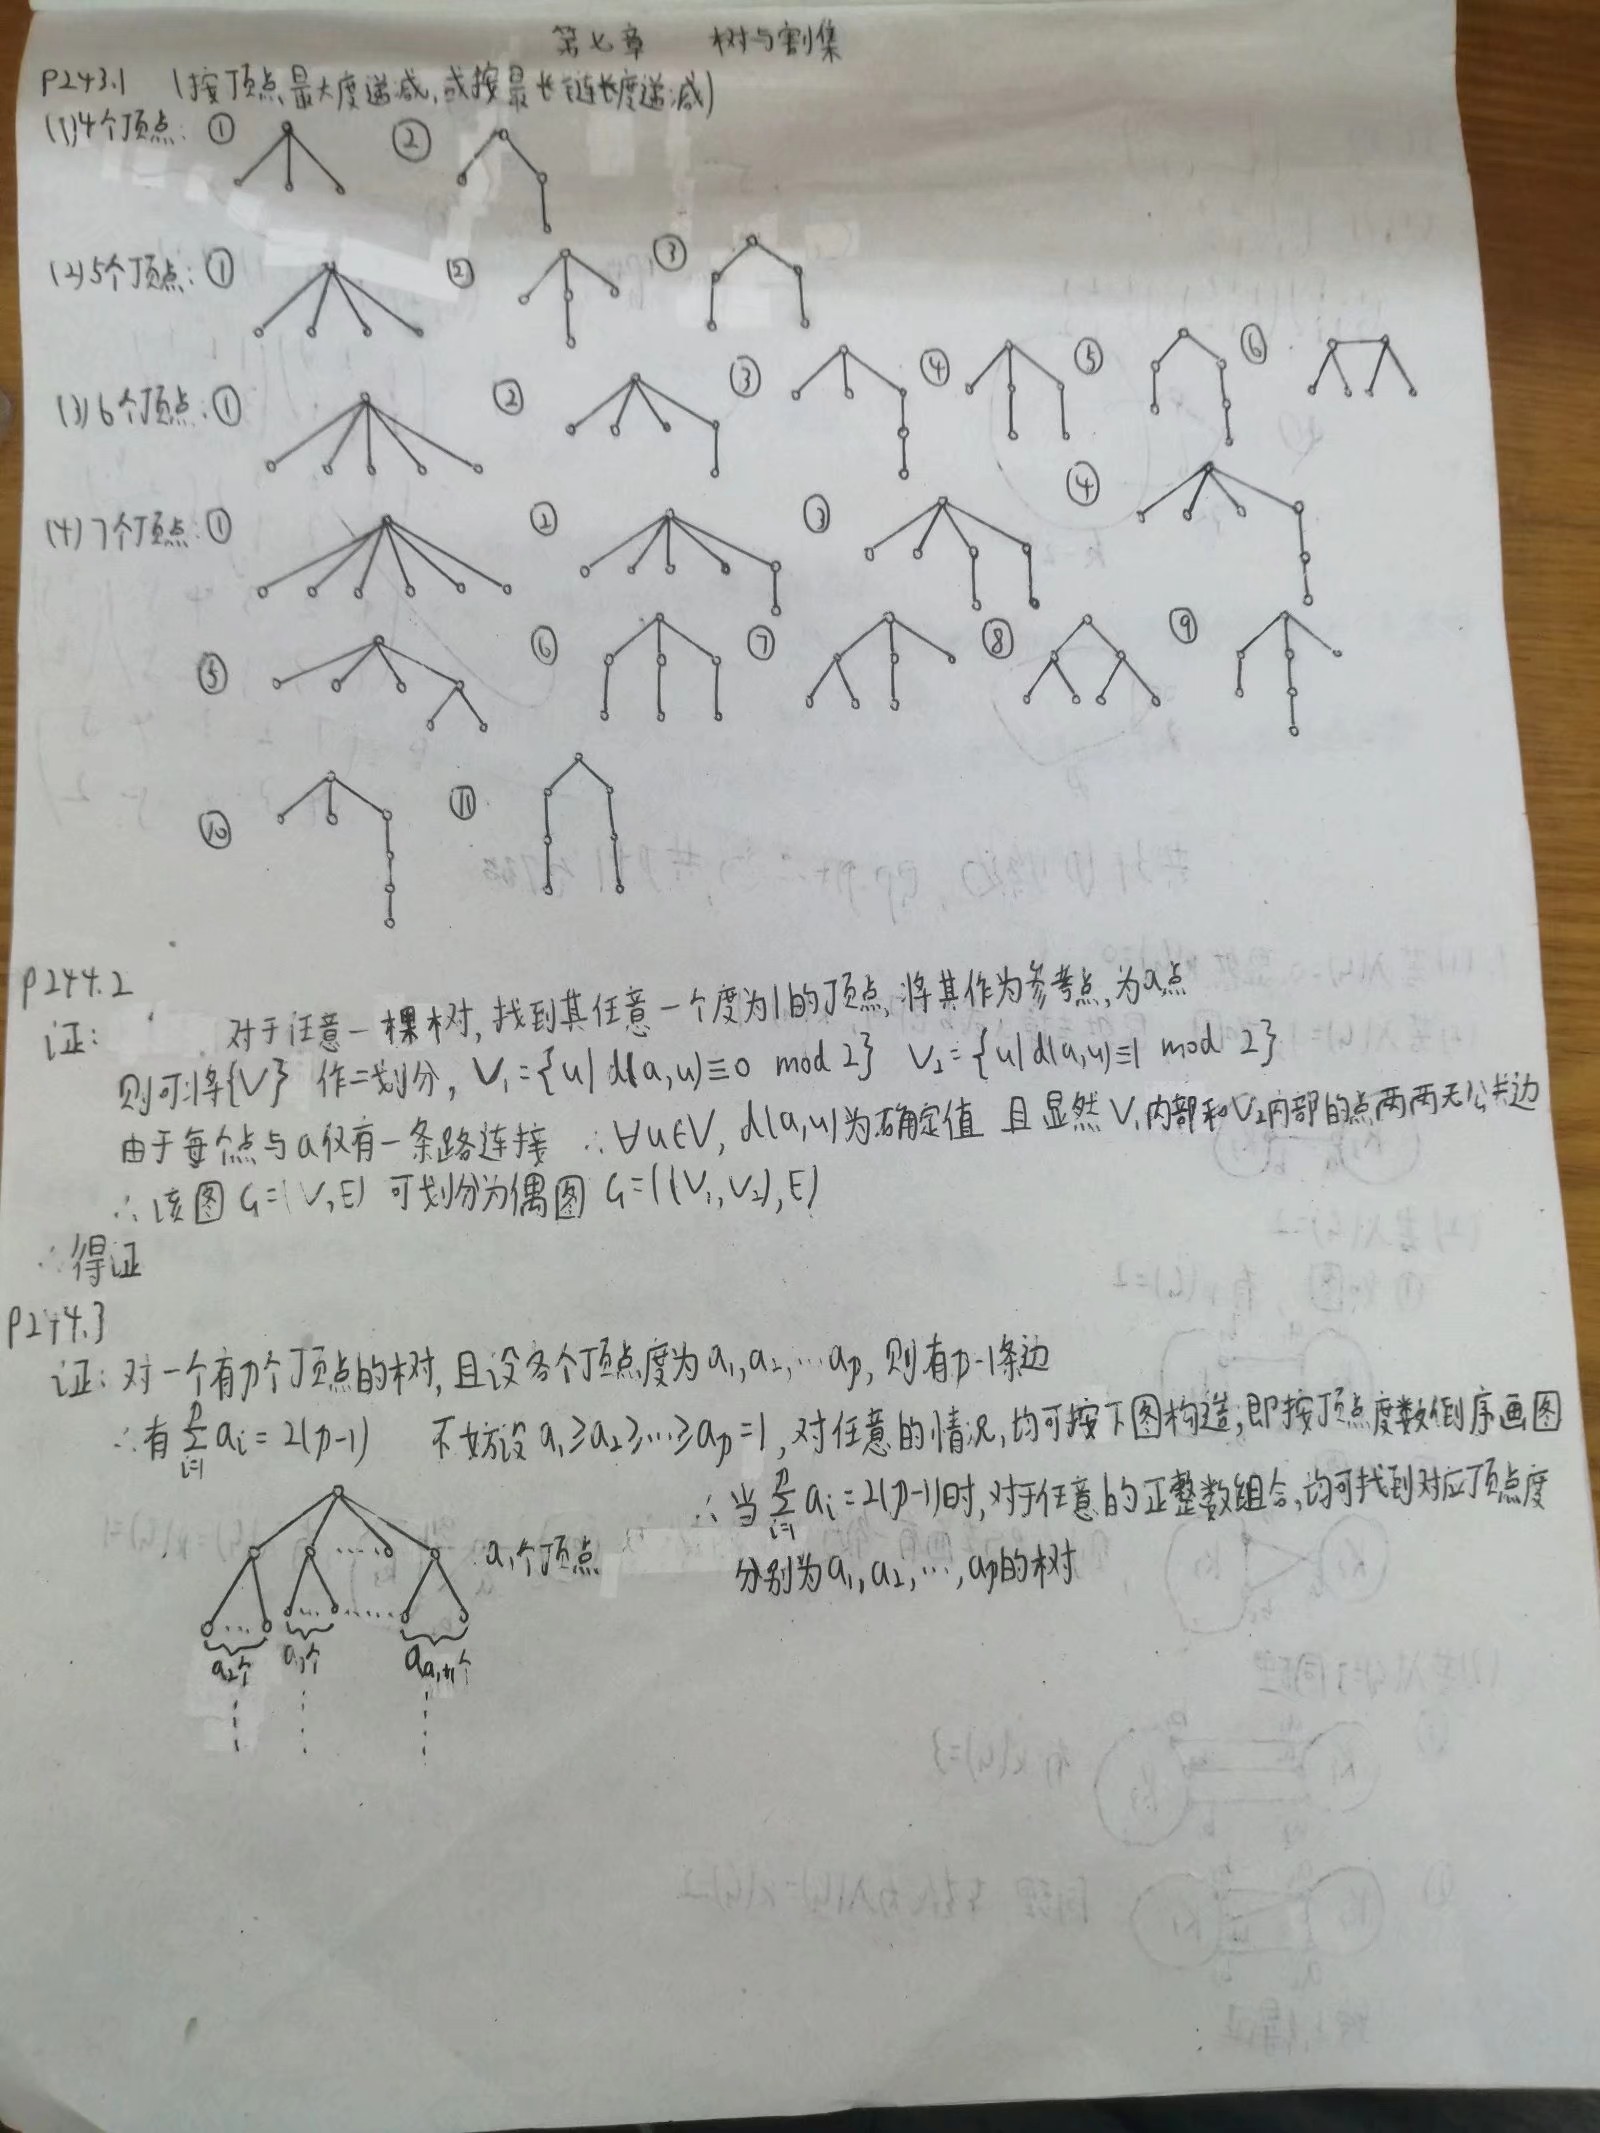 第七章 树与割集
P243.1 (按顶点最大度递减,或按最长链长度递减)
(1)4个顶点: ① ②
(2)5个顶点: ① ② ③
(3)6个顶点: ① ② ③ ④ ⑤ ⑥
(4)7个顶点: ① ② ③ ④
⑤ ⑥ ⑦ ⑧ ⑨
⑩ ⑪
P244.2
证: 对于任意一棵树,找到其任意一个度为1的顶点,将其作为参考点,为a点
则可将{V}作二划分, V₁={u|d(a,u)≡0 mod 2} V₂={u|d(a,u)≡1 mod 2}
由于每个点与a仅有一条路连接 ∴∀u∈V, d(a,u)为确定值 且显然V₁内部和V₂内部的点两两无公共边
∴该图G=(V,E)可划分为偶图G=((V₁,V₂),E)
∴得证
P244.3
证: 对一个有p个顶点的树,且设各个顶点度为a₁,a₂,…aₚ,则有p-1条边
∴有 p∑i=1 aᵢ=2(p-1) 不妨设a₁≥a₂≥…≥aₚ=1,对任意的情况,均可按下图构造,即按顶点度数倒序画图
∴当 p∑i=1 aᵢ=2(p-1)时,对于任意的正整数组合,均可找到对应顶点度
分别为a₁,a₂,…,aₚ的树
a₁个顶点
a₂个 a₃个